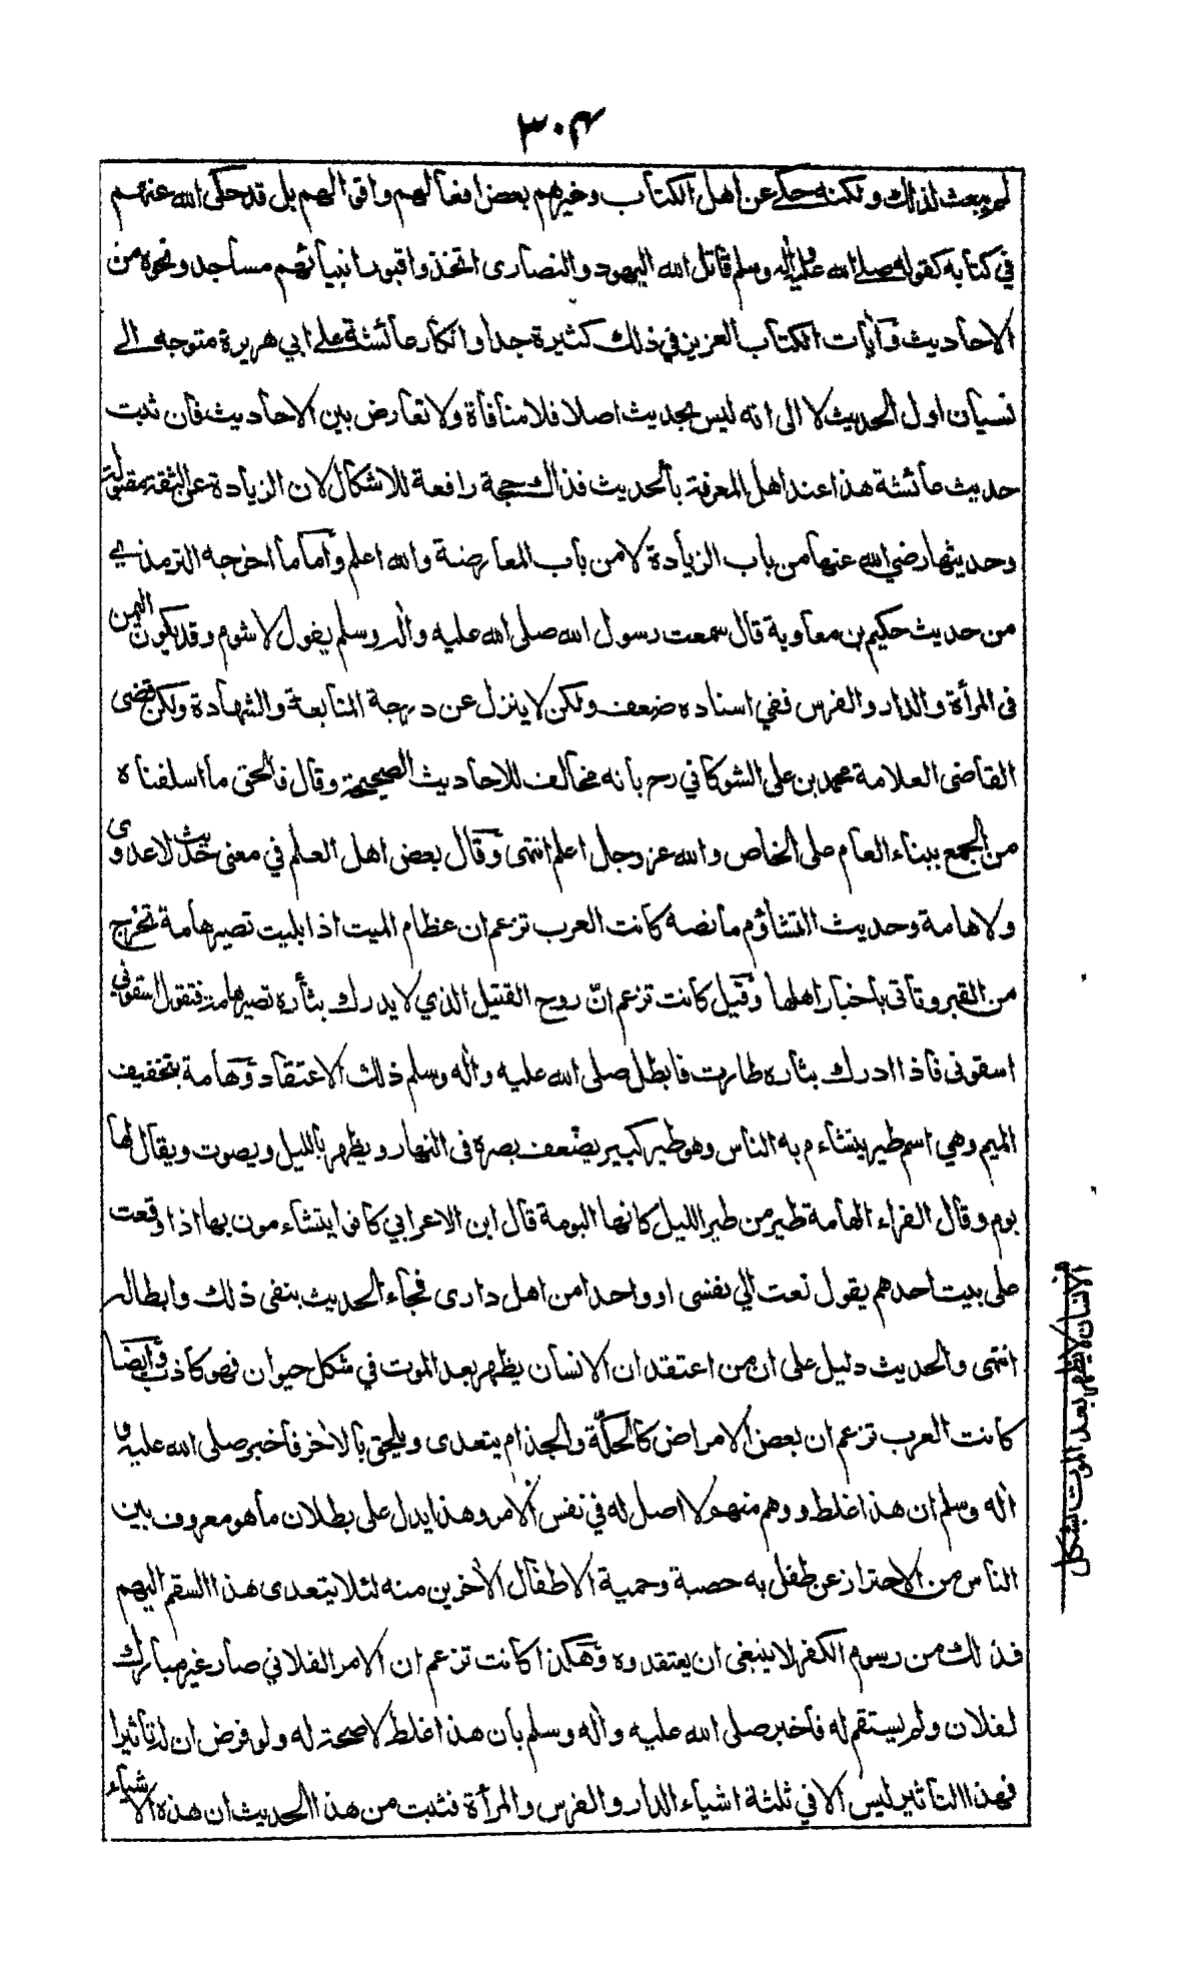 ٣٠۴
لم يبعث لذلك ولكنه حكى عن اهل الكتاب وغيرهم بعض افعالهم واقوالهم بل قد حكى الله عنهم
في كتابه كقوله صلى الله عليه وآله وسلم قاتل الله اليهود والنصارى اتخذوا قبور انبيائهم مساجد ونحوه من
الاحاديث وآيات الكتاب العزيز في ذلك كثيرة جدا وانكار عائشة على ابي هريرة متوجه الى
نسيان اول الحديث لا الى انه ليس بحديث اصلا فلا منافاة ولا تعارض بين الاحاديث فان ثبت
حديث عائشة هذا عند اهل المعرفة بالحديث فذاك حجة رافعة للاشكال لان الزيادة عن الثقة مقبولة
وحديثها رضي الله عنها من باب الزيادة لا من باب المعارضة والله اعلم وأما ما اخرجه الترمذي
من حديث حكيم بن معاوية قال سمعت رسول الله صلى الله عليه وآله وسلم يقول لا شوم وقد يكون اليمن
فى المرأة والدار والفرس ففي اسناده ضعف ولكن لا ينزل عن درجة المتابعة والشهادة ولكن قضى
القاضى العلامة محمد بن على الشوكاني رح بانه مخالف للاحاديث الصحيحة وقال فالحق ما اسلفناه
من الجمع ببناء العام على الخاص والله عز وجل اعلم انتهى وقال بعض اهل العلم في معنى حديث لا عدوى
ولا هامة وحديث التشاؤم ما نصه كانت العرب تزعم ان عظام الميت اذا بليت تصير هامة تخرج
من القبر وتأتي باخبار اهلها وقيل كانت تزعم انّ روح القتيل الذي لا يدرك بثأره تصير هامة فتقول اسقوني
اسقونى فاذا ادرك بثاره طارت فابطل صلى الله عليه وآله وسلم ذلك الاعتقاد وهامة بتخفيف
الميم وهي اسم طير يتشاءم به الناس وهو طير كبير يضعف بصره فى النهار ويظهر بالليل ويصوت ويقال لها
بوم وقال الفراء الهامة طير من طير الليل كانها البومة قال ابن الاعرابي كانوا يتشاءمون بها اذا وقعت
على بيت احدهم يقول نعت الي نفسى او واحدا من اهل دارى فجاء الحديث بنفى ذلك وابطاله
انتهى والحديث دليل على ان من اعتقد ان الانسان يظهر بعد الموت في شكل حيوان فهو كاذب وأيضا
كانت العرب تزعم ان بعض الامراض كالحكّة والجذام يتعدى ويلحق بالآخر فاخبر صلى الله عليه و
آله وسلم ان هذا غلط ووهم منهم لا اصل له في نفس الامر وهذا يدل على بطلان ما هو معروف بين
الناس من الاحتراز عن طفل به حصبة وحمية الاطفال الآخرين منه لئلا يتعدى هذا السقم اليهم
فذلك من رسوم الكفر لا ينبغى ان يعتقدوه وهكذا كانت تزعم ان الامر الفلاني صار غير مبارك
لفلان ولم يستقم له فاخبر صلى الله عليه وآله وسلم بان هذا غلط لا صحة له ولو فرض ان له تأثيرا
فهذا التأثير ليس الا في ثلثة اشياء الدار والفرس والمرأة فثبت من هذا الحديث ان هذه الاشياء
الانسان لا يظهر بعد الموت بشكل